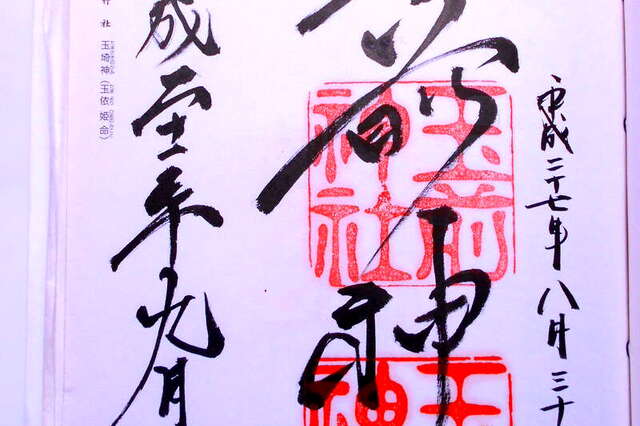 平成二十七年八月三十
前神
玉前
神社
成二十年九月
社 玉埼神(玉依姫命)